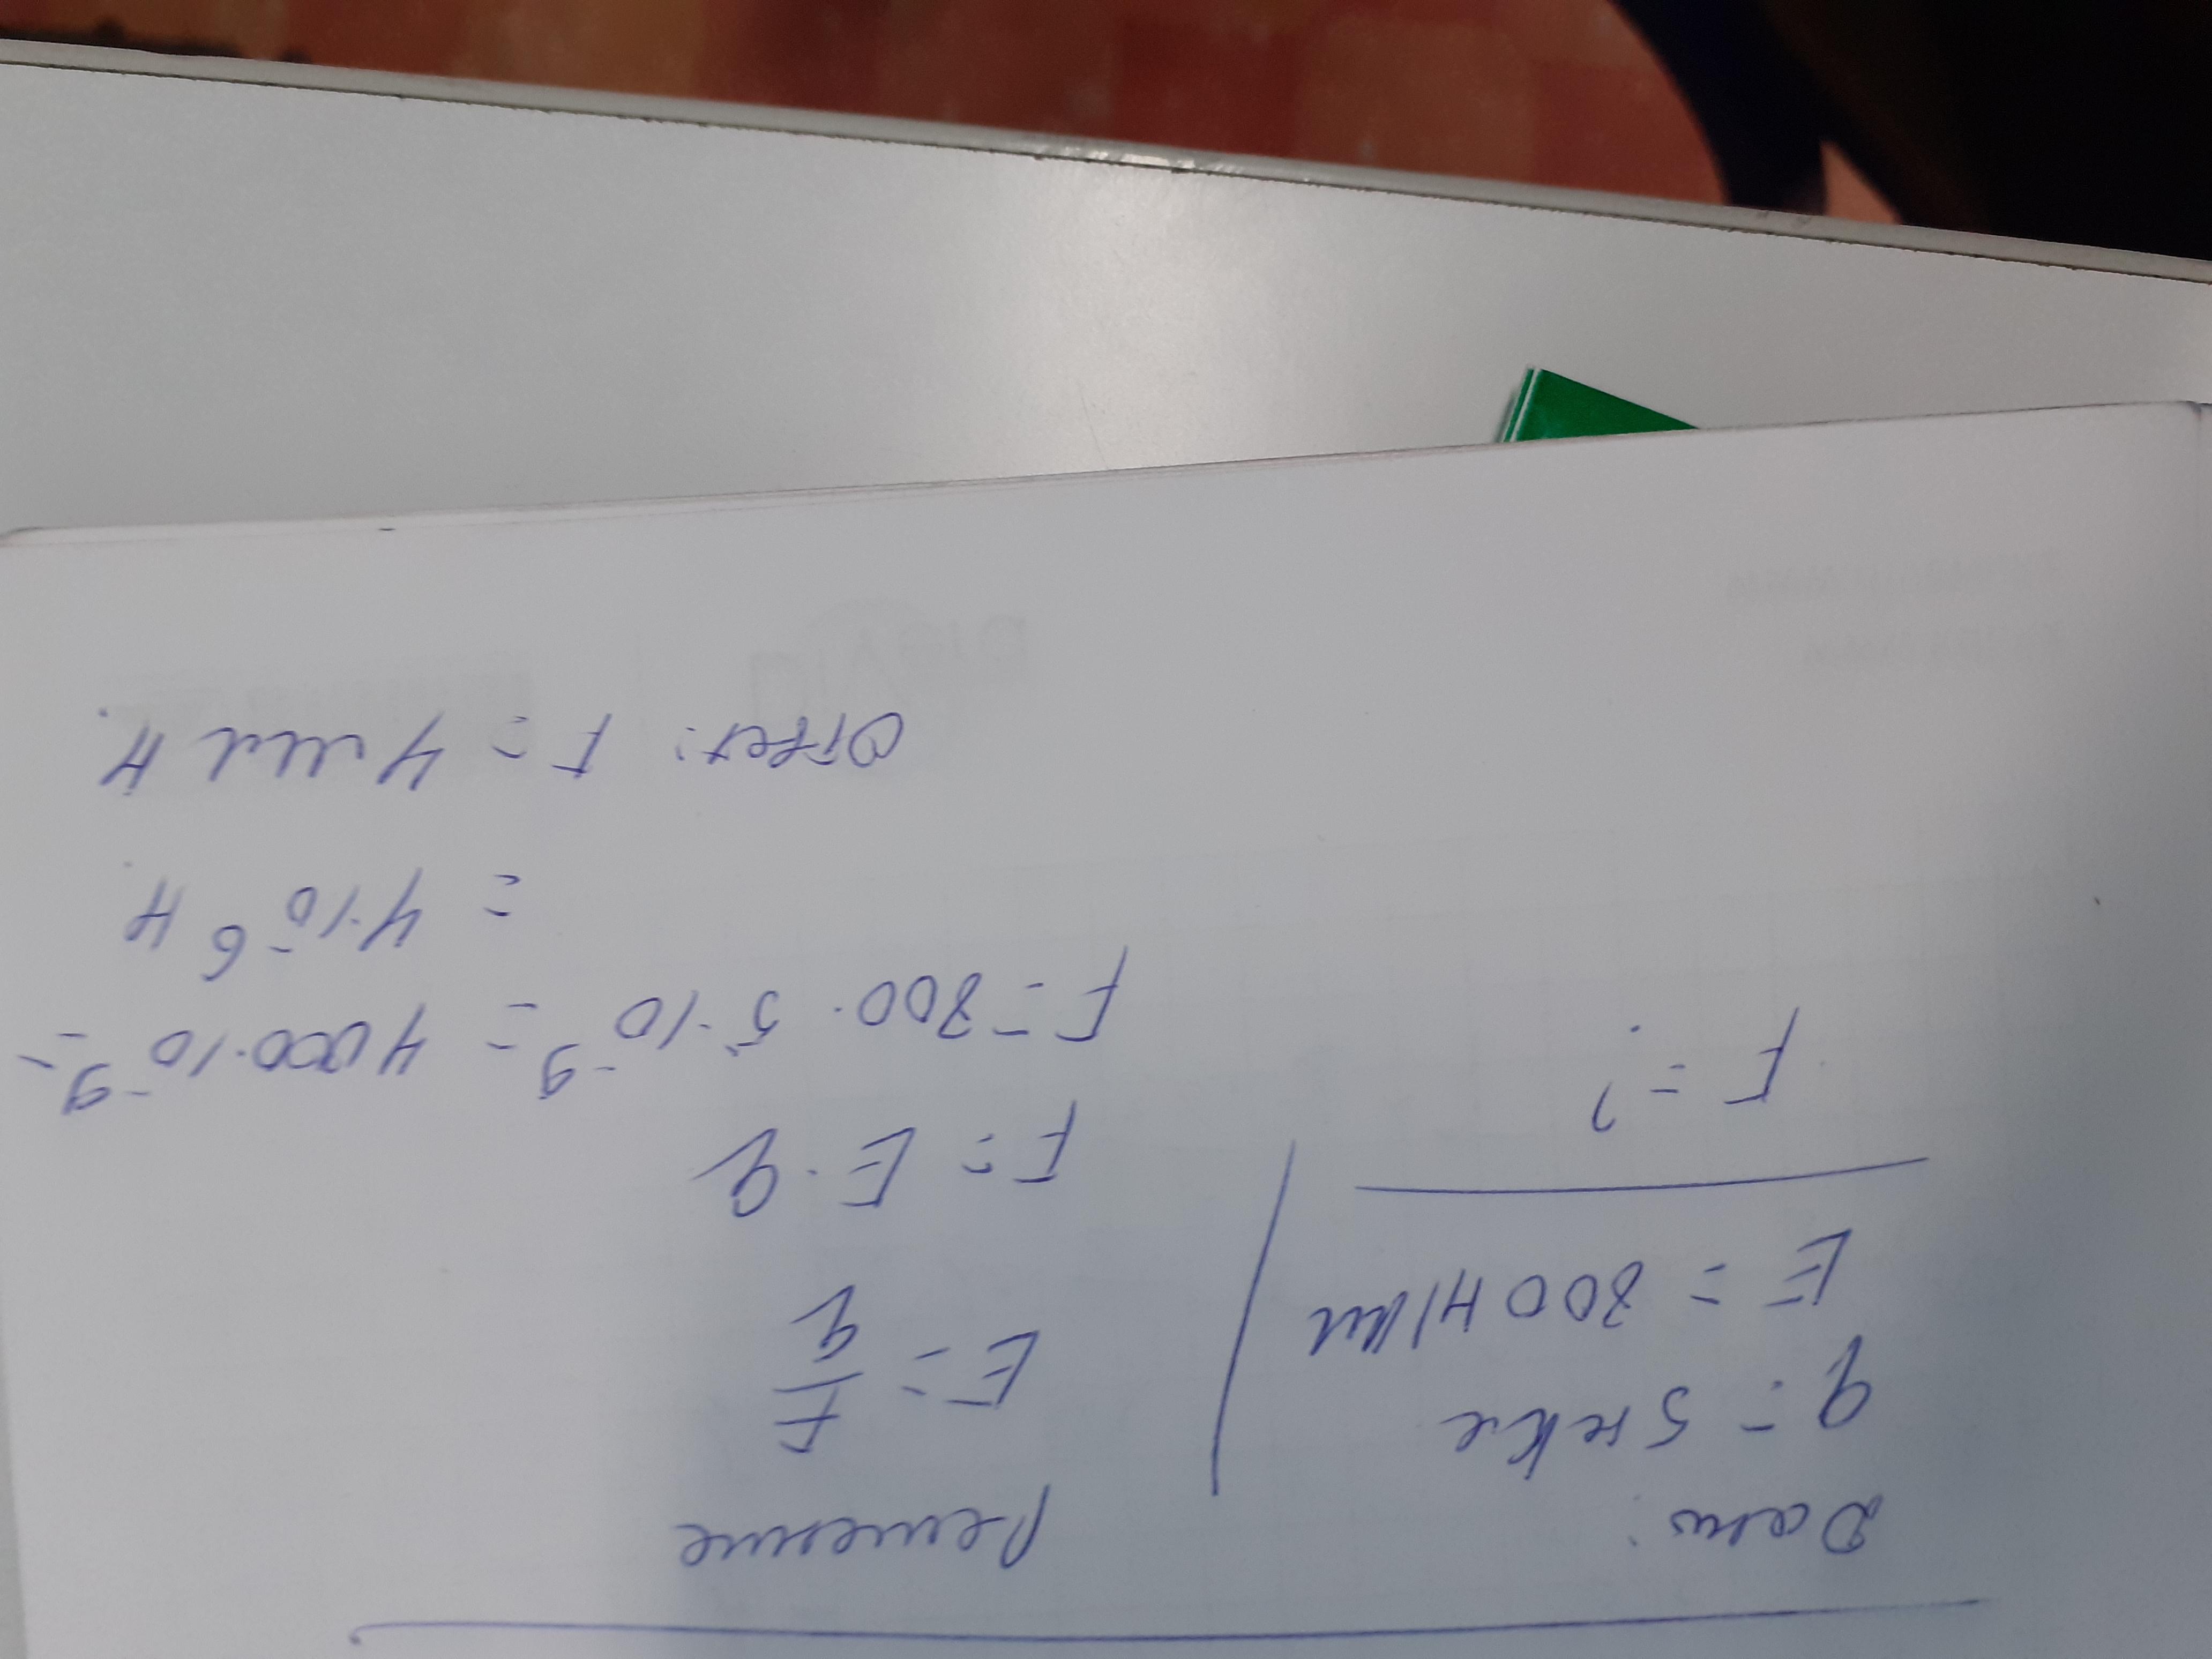 Дано:
q = 5 нКл
E = 800 Н/Кл
F = ?
Решение
E = F/q
F = E · q
F = 800 · 5 · 10⁻⁹ = 4000 · 10⁻⁹ =
= 4 · 10⁻⁶ Н.
Ответ: F = 4 мкН.